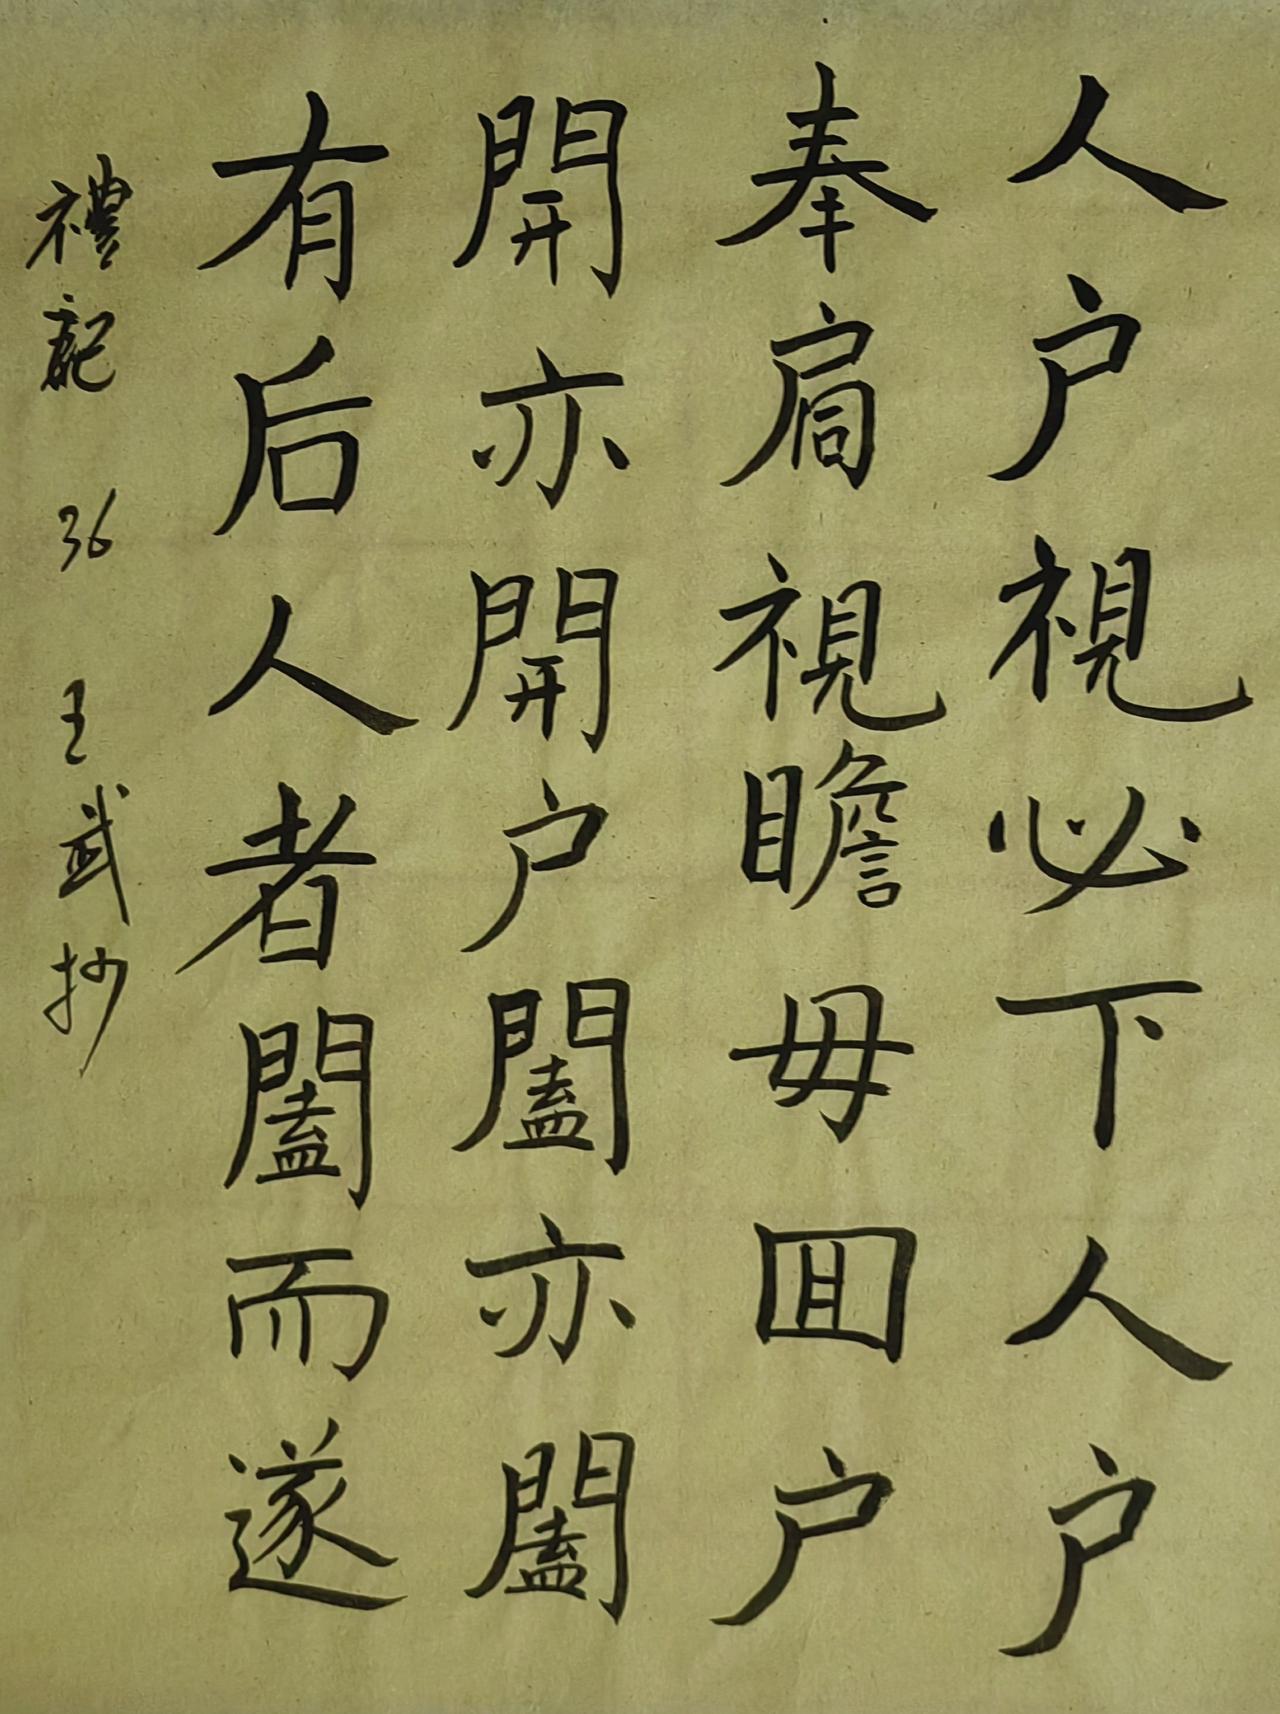 人户視必下人户
奉扃視瞻毋囬户
開亦開户闔亦闔
有后人者闔而遂
禮記 36 王武抄